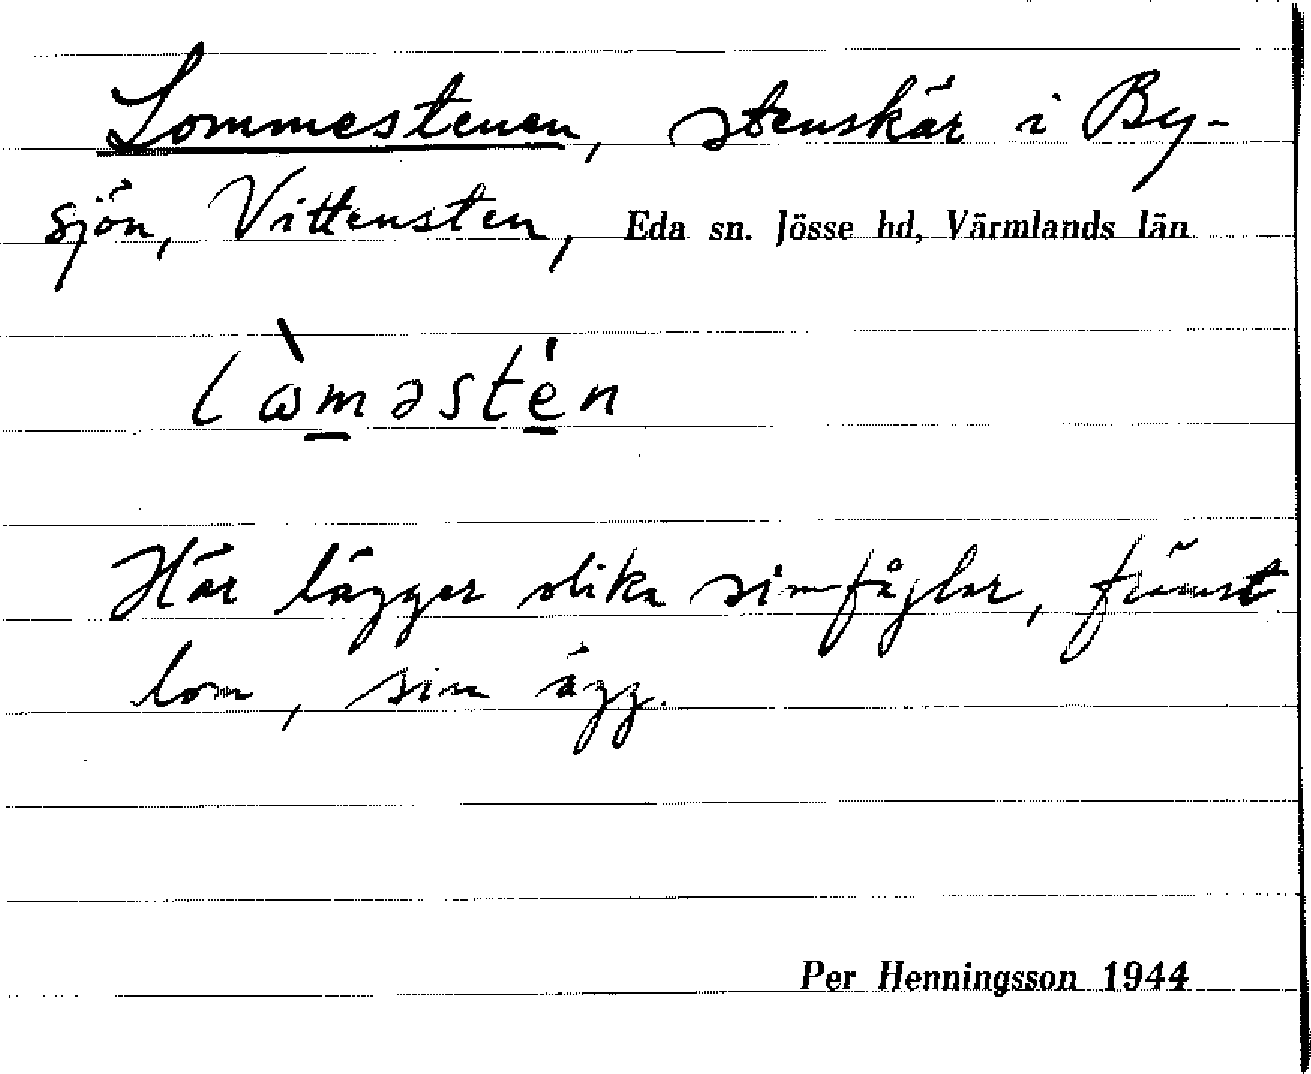 Lommestenen, stenskär i By-
sjön, Vittensten, Eda sn. Jösse hd, Värmlands län
lὼməstén
Här lägger olika simfåglar, främst
lom, sin ägg.
Per Henningsson 1944